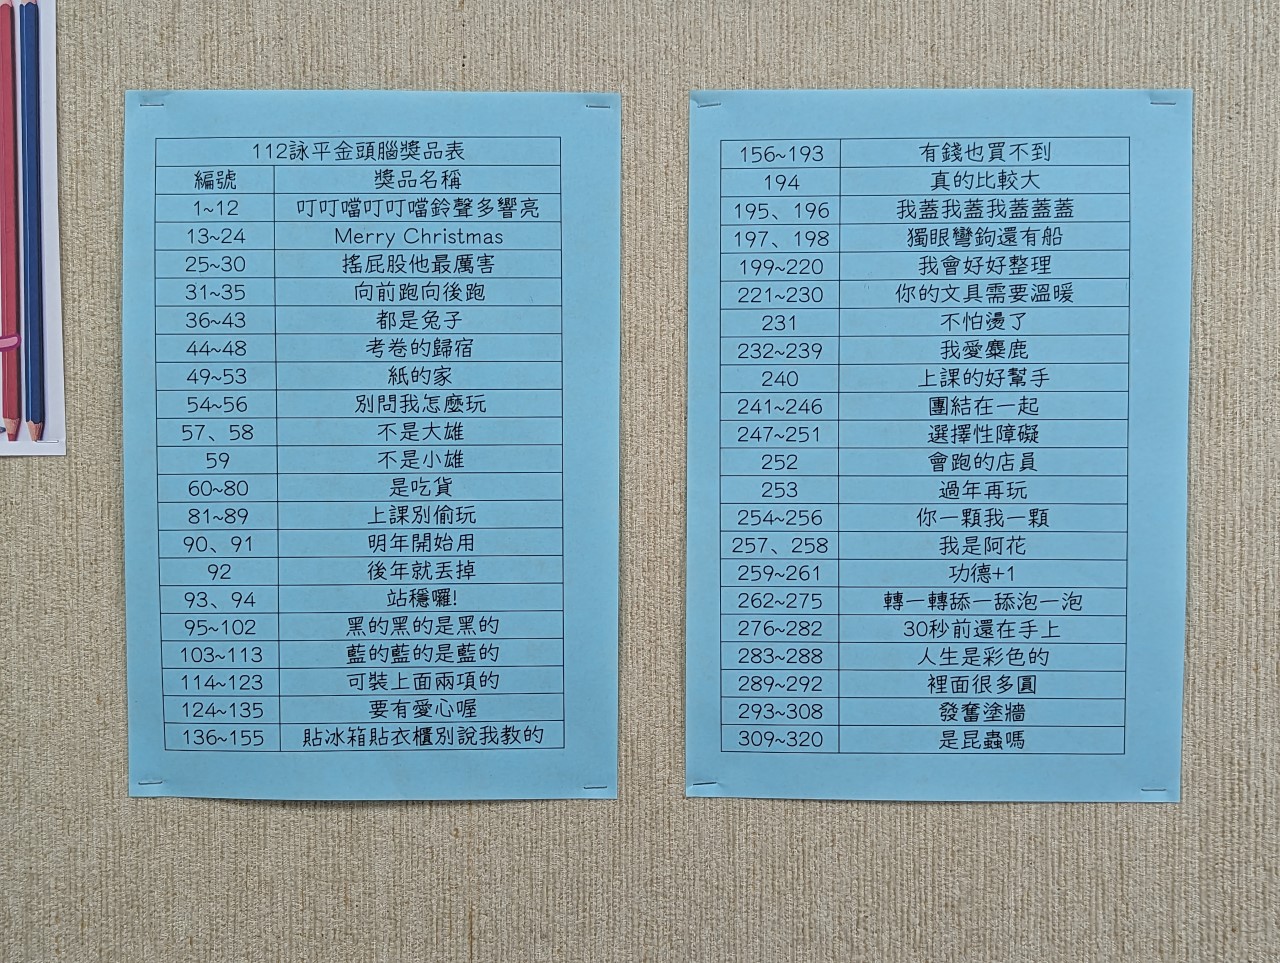 112詠平金頭腦獎品表
編號 獎品名稱
1~12 叮叮噹叮叮噹鈴聲多響亮
13~24 Merry Christmas
25~30 搖屁股他最厲害
31~35 向前跑向後跑
36~43 都是兔子
44~48 考卷的歸宿
49~53 紙的家
54~56 別問我怎麼玩
57、58 不是大雄
59 不是小雄
60~80 是吃貨
81~89 上課別偷玩
90、91 明年開始用
92 後年就丟掉
93、94 站穩囉!
95~102 黑的黑的是黑的
103~113 藍的藍的是藍的
114~123 可裝上面兩項的
124~135 要有愛心喔
136~155 貼冰箱貼衣櫃別說我教的
156~193 有錢也買不到
194 真的比較大
195、196 我蓋我蓋我蓋蓋蓋
197、198 獨眼彎鉤還有船
199~220 我會好好整理
221~230 你的文具需要溫暖
231 不怕燙了
232~239 我愛麋鹿
240 上課的好幫手
241~246 團結在一起
247~251 選擇性障礙
252 會跑的店員
253 過年再玩
254~256 你一顆我一顆
257、258 我是阿花
259~261 功德+1
262~275 轉一轉舔一舔泡一泡
276~282 30秒前還在手上
283~288 人生是彩色的
289~292 裡面很多圓
293~308 發奮塗牆
309~320 是昆蟲嗎